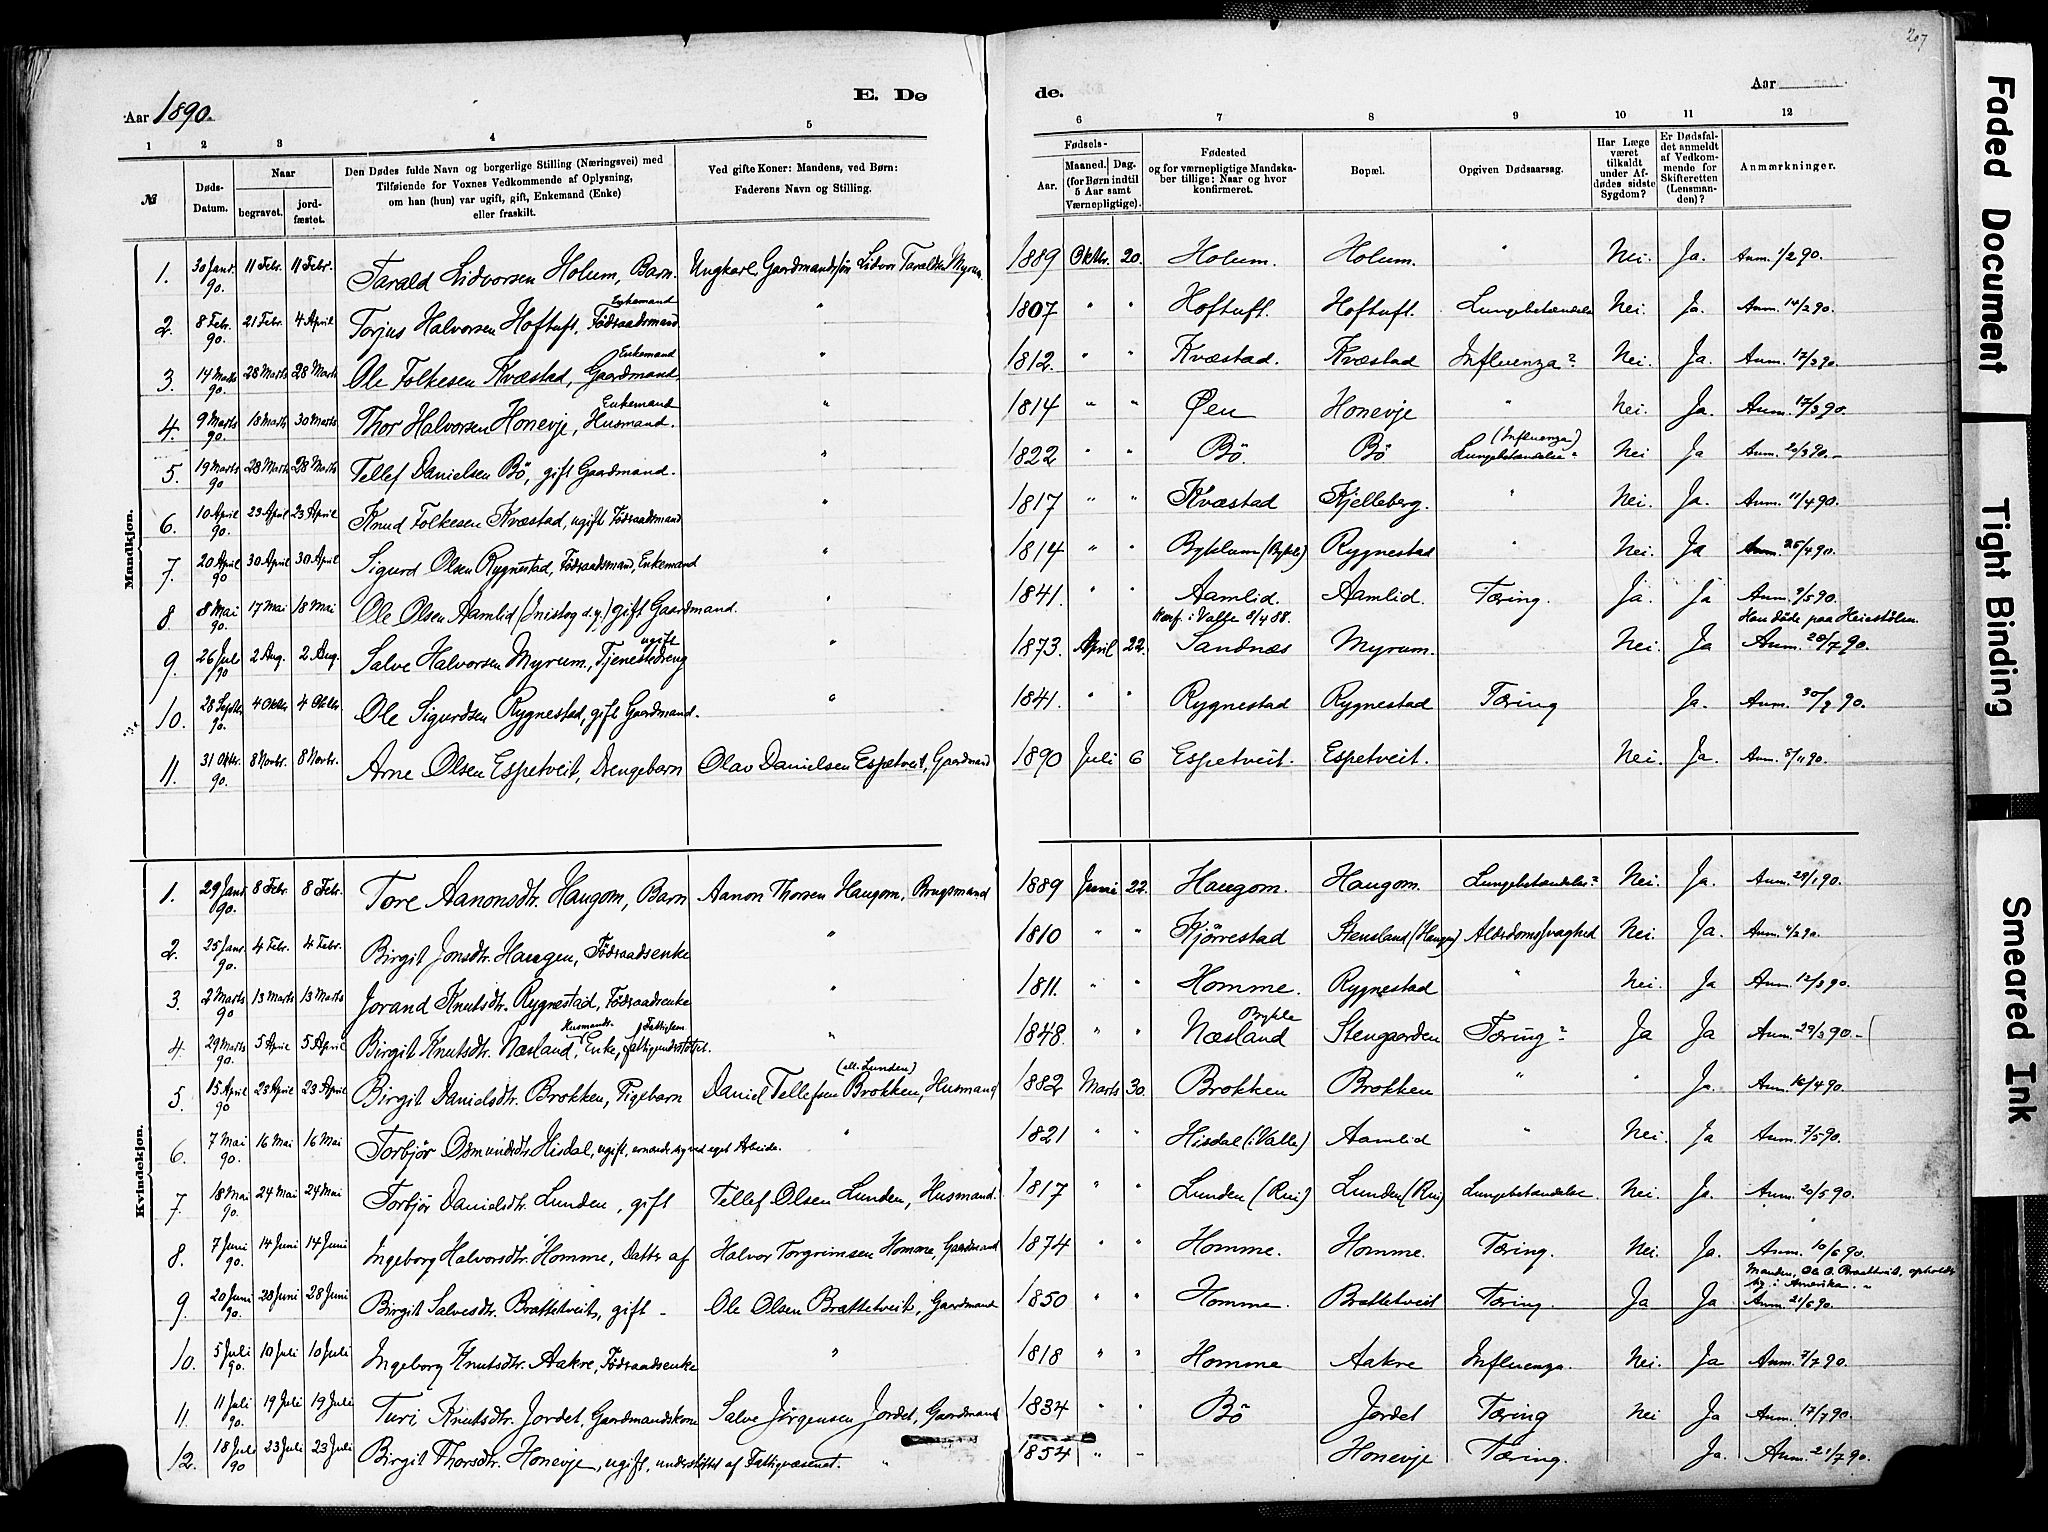 207
Aar 1890.
E. Dø
de.
Aar
1 2 3 4 5 6 7 8 9 10 11 12
№
Døds-Datum.
Naar
begravet.
jord-fæstet.
Den Dødes fulde Navn og borgerlige Stilling (Næringsvei) med
Tilføiende for Voxnes Vedkommende af Oplysning,
om han (hun) var ugift, gift, Enkemand (Enke)
eller fraskilt.
Ved gifte Koner: Mandens, ved Børn:
Faderens Navn og Stilling.
Fødsels-
Aar.
Maaned. Dag.
(for Børn indtil
5 Aar samt
Værnepligtige).
Fødested
og for værnepligtige Mandska-
ber tillige: Naar og hvor
konfirmeret.
Bopæl.
Opgiven Dødsaarsag.
Har Læge
været
tilkaldt
under Af-
dødes sidste
Sygdom?
Er Dødsfal-
det anmeldt
af Vedkom-
mende for
Skifteretten
(Lensman-
den)?
Anmærkninger.
Mandkjøn.
1. 30 Janr. 90. 11 Febr. 11 Febr. Tarald Lidvorsen Holum, Barn. Ungkarl, Gaardmandssøn Lidvor Taraldsen Myrum. 1889 Oktbr. 20. Holum. Holum. " Nei. Ja. Anm. 1/2 90.
2. 8 Febr. 90. 21 Febr. 4 April Torjus Halvorsen Hoftuft, Enkemand Födraadsmand. " 1807 " " Hoftuft. Hoftuft. Lungebetændelse Nei. Ja. Anm. 14/2 90.
3. 14 Marts 90. 28 Marts 28 Marts Ole Folkesen Kvæstad, Enkemand Gaardmand. " 1812. " " Kvæstad. Kvæstad Influenza? Nei. Ja. Anm. 17/3 90.
4. 9 Marts 90. 18 Marts 30 Marts Thor Halvorsen Honevje, Enkemand Husmand. " 1814 " " Øen Honevje " Nei. Ja. Anm. 17/3 90.
5. 19 Marts 90 28 Marts 28 Marts Tellef Danielsen Bö, gift Gaardmand. " 1822 " " Bö. Bö (Influenza) Lungebetændelse " Nei Ja Anm. 20/3 90.-
6. 10 April 90. 23 April 23 April Knud Folkesen Kvæstad, ugift Födraadsmand " 1817 " " Kvæstad Kjelleberg. " Nei. Ja. Anm. 11/4 90.
7. 20 April 90 30 April 30 April Sigurd Olsen Rygnestad, Födraadsmand, Enkemand " 1814 " " Byklum (Bykle) Rygnestad " Nei. Ja Anm. 25/4 90.
8 8 Mai 90. 17 Mai 18 Mai Ole Olsen Aamlid (Inistog d.y.) gift Gaardmand. " 1841. " " Aamlid. Aamlid. Tæring. Ja. Ja Anm. 9/5 90.
9. 26 Juli 90 2 Aug. 2 Aug. Salve Halvorsen Myrum, ugift Tjenestedreng " 1873. April 22. Konf. i Valle 8/4 88. Sandnæs Myrum. Nei. Ja Han døde paa Heiestølen. Anm. 28/7 90.
10. 28 Septbr. 90. 4 Oktbr. 4 Oktbr. Ole Sigurdsen Rygnestad, gift Gaardmand. " 1841. " " Rygnestad Rygnestad Tæring Ja. Anm. 30/9 90.
11. 31 Oktbr. 90. 8 Novbr. 8 Novbr. Arne Olsen Espetveit, Drengebarn Olav Danielsen Espetveit, Gaardmand 1890 Juli 6 Espetveit. Espetveit. Nei. Ja. Anm. 8/11 90.
Kvindekjøn.
1. 29 Janr. 90. 8 Febr. 8 Febr. Tore Aanonsdtr. Haugom, Barn Aanon Thorsen Haugom, Brugsmand 1889 Juni 22. Haugom. Haugom. Lungebetændelse? Nei. Ja. Anm. 29/1 90.
2. 25 Janr. 90. 4 Febr. 4 Febr. Birgit Jonsdtr. Haugen, Födraadsenke " 1810 " " Kjörrestad Stensland (Haugen) Alderdomssvaghed Nei. Ja. Anm. 4/2 90.
3. 2 Marts 90 13 Marts 13 Marts Jorand Knutsdtr. Rygnestad, Födraadsenke " 1811. " " Homme. Rygnestad " Nei. Ja Anm. 12/3 90.
4. 29 Marts 90. 5 April 5 April Birgit Knutsdtr. Næsland, Husmands. Enke, Fattiglem fattigunderstöttet. " 1848. " " Bykle Næsland Stengaarden Tæring? Ja Ja Anm. 29/3 90.-
5. 15 April 90 23 April 23 April Birgit Danielsdtr. Brokken, Pigebarn Daniel Tellefsen (ell. Lunden) Brokken, Husmand 1882 Marts 30. Brokken Brokken " " Ja. Anm. 16/4 90.
6. 7 Mai 90. 16 Mai 16 Mai Torbjör Osmundsdtr. Hisdal, ugift, ernærede sig ved eget Arbeide. " 1821 " " Hisdal (i Valle) Aamlid " Nei. Ja Anm. 7/5 90.
7. 18 Mai 90. 24 Mai 24 Mai Torbjör Danielsdtr. Lunden, gift Tellef Olsen Lunden, Husmand. 1817 " " Lunden (Rui) Lunden (Rui) Lungebetændelse Nei. Ja. Anm. 20/5 90.
8. 7 Juni 90. 14 Juni 14 Juni Ingeborg Halvorsdtr. Homme, Datter af Halvor Torgrimsen Homme, Gaardmand 1874 " " Homme. Homme. Tæring. Nei. Ja. Anm. 10/6 90.
9. 20 Juni 90. 28 Juni 28 Juni Birgit Salvesdtr. Brattetveit, gift - Ole Olsen Brættetveit, Gaardmand 1850 " " Homme. Brattetveit Tæring. Ja Ja Manden, Ole O. Brættveit, opholdt sig i Amerika. " Anm. 21/6 90.
10. 5 Juli 90. 10 Juli 10 Juli Ingeborg Knutsdtr. Aakre, Födraadsenke " 1818 " " Homme Aakre Influenza. Nei. Ja Anm. 7/7 90.
11. 11 Juli 90. 19 Juli 19 Juli Turi Knutsdtr. Jordet, Gaardmandskone Salve Jörgensen Jordet, Gaardmand 1834 " " Bö Jordet Tæring Nei Ja Anm. 17/7 90.
12. 18 Juli 90 23 Juli 23 Juli Birgit Thorsdtr. Honevje, ugift, understöttet af Fattigvæsenet. " 1854 " - Honevje Tæring. Ja. Anm. 21/7 90.
Faded Document
Tight Binding
Smeared Ink